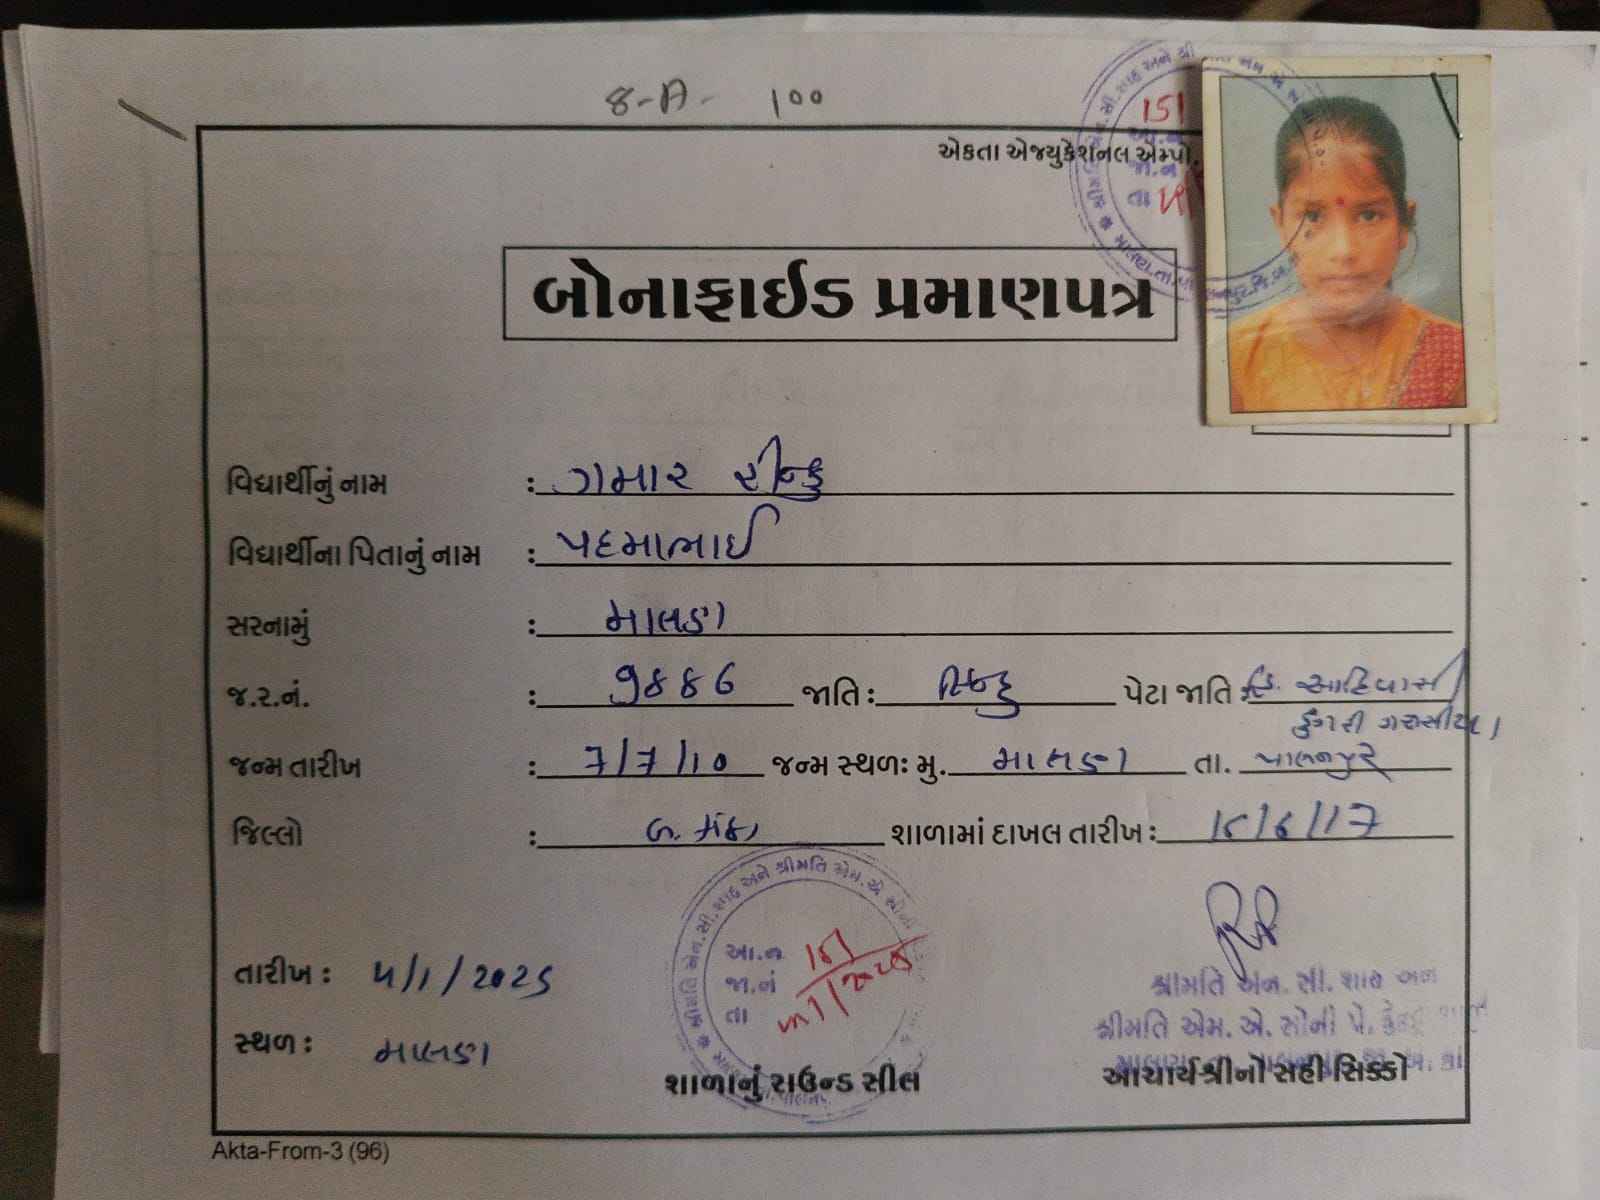 8-A- 100
એકતા એજ્યુકેશનલ એમ્પો.
બોનાફાઈડ પ્રમાણપત્ર
વિદ્યાર્થીનું નામ : ગમાર રીન્કુ
વિદ્યાર્થીના પિતાનું નામ : પદમાભાઈ
સરનામું : માલણ
જ.ર.નં. : ૧૪૪૬ જાતિ : હિન્દુ પેટા જાતિ : હિ. આદિવાસી
ડુંગરી ગરાસીયા
જન્મ તારીખ : 7/7/10 જન્મ સ્થળઃ મુ. માલણ તા. પાલનપુર
જિલ્લો : બ.કાંઠા શાળામાં દાખલ તારીખ : 15/6/17
તારીખ : ૫/1/2025
સ્થળ : માલણ
આ.ન 151
જા.નં
તા
શ્રીમતિ એન. સી. શાહ અને
શ્રીમતિ એમ. એ. સોની પે. કેન્દ્ર શાળા
શાળાનું રાઉન્ડ સીલ
આચાર્યશ્રીનો સહી સિક્કો
Akta-From-3 (96)